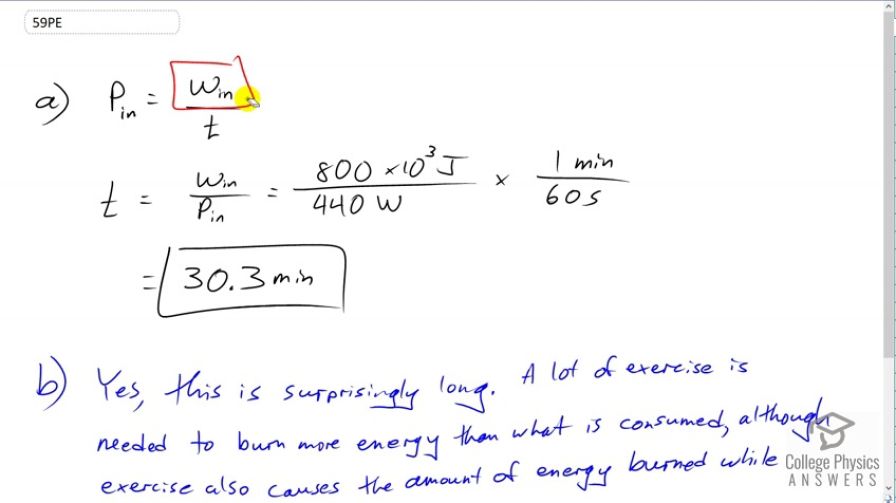 59PE
a) P_in = W_in / t
t = W_in / P_in = 800 × 10³ J / 440 W × 1 min / 60 s
= 30.3 min
b) Yes, this is surprisingly long. A lot of exercise is
needed to burn more energy than what is consumed, although
exercise also causes the amount of energy burned while
College Physics
ANSWERS